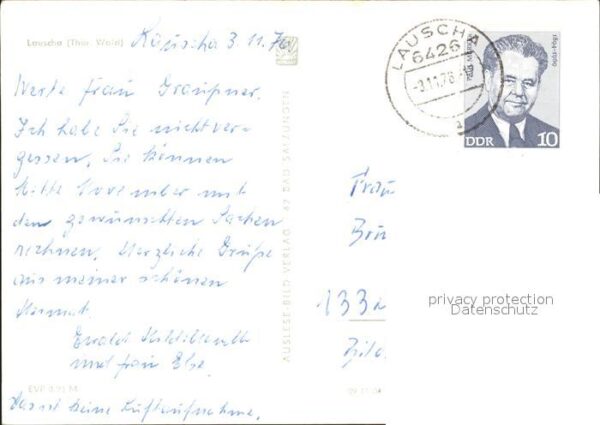 Lauscha (Thür. Wald)
Lauscha 3.11.76
Werte Frau Graupner.
Ich habe Sie nicht ver-
gessen, Sie können
Mitte November mit
den gewünschten Sachen
rechnen. Herzliche Grüße
aus meiner schönen
Heimat.
Ewald
und Frau Else.
EVP 0,21 M
Das ist keine Luftaufnahme.
AUSLESE-BILD-VERLAG 62 BAD SALZUNGEN
LAUSCHA
6426
-3.11.76
a
DDR 10
Frau
133
privacy protection
Datenschutz